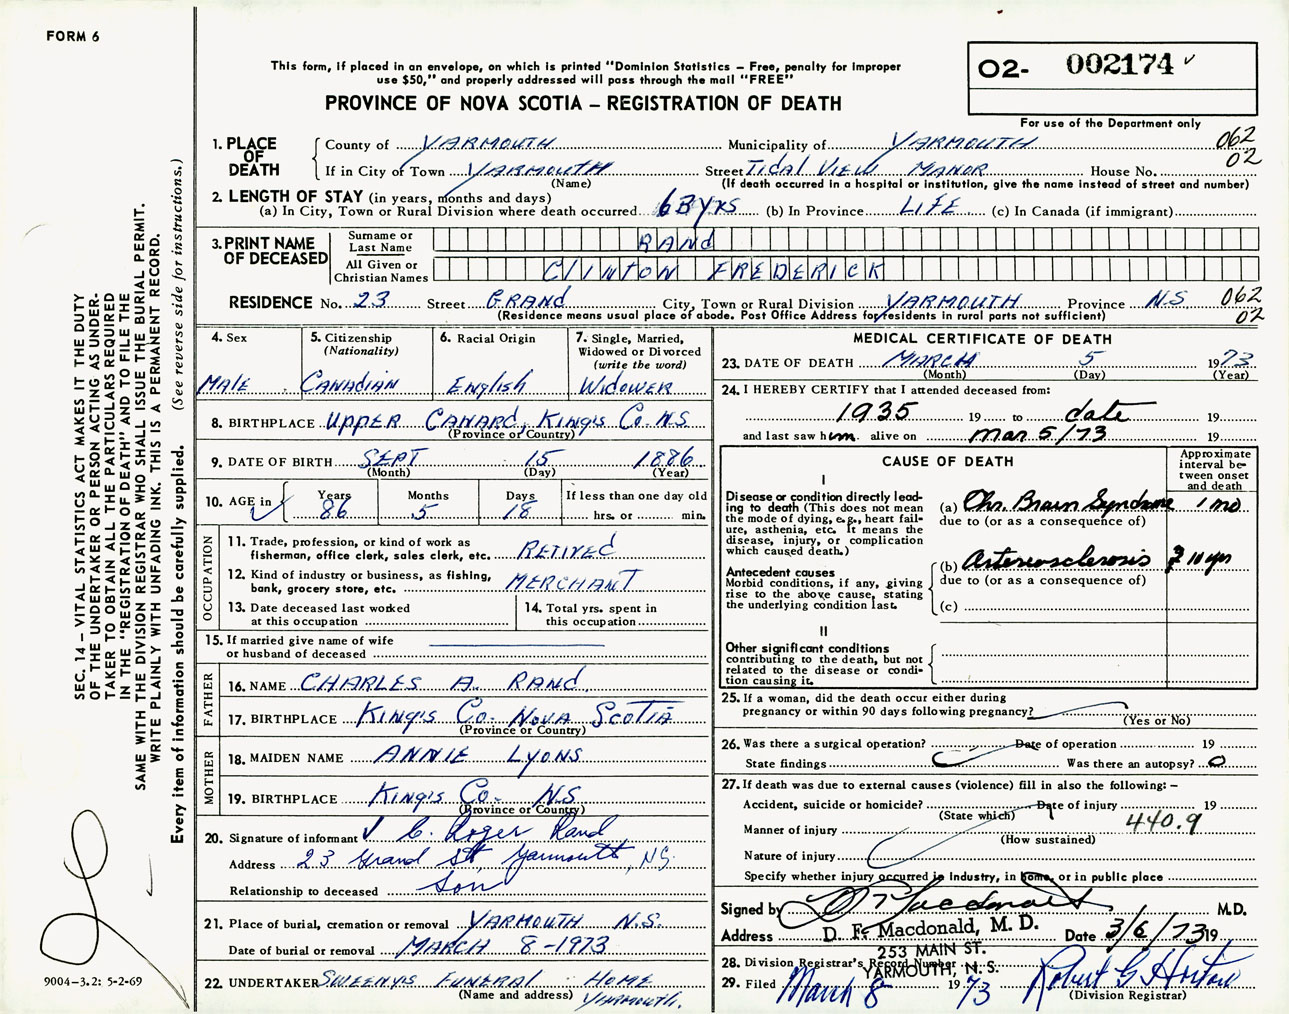 FORM 6
This form, if placed in an envelope, on which is printed "Dominion Statistics – Free, penalty for improper
use $50," and properly addressed will pass through the mail "FREE"
PROVINCE OF NOVA SCOTIA – REGISTRATION OF DEATH
O2- 002174
For use of the Department only
062
02
1. PLACE OF DEATH
County of YARMOUTH Municipality of YARMOUTH
If in City of Town YARMOUTH Street Tidal View MANOR House No.
(Name) (If death occurred in a hospital or institution, give the name instead of street and number)
2. LENGTH OF STAY (in years, months and days)
(a) In City, Town or Rural Division where death occurred 63 yrs (b) In Province LIFE (c) In Canada (if immigrant)
3. PRINT NAME OF DECEASED
Surname or Last Name RAND
All Given or Christian Names CLINTON FREDERICK
RESIDENCE No. 23 Street GRAND City, Town or Rural Division YARMOUTH Province N.S 062
(Residence means usual place of abode. Post Office Address for residents in rural parts not sufficient) 02
4. Sex
MALE
5. Citizenship
(Nationality)
CANADIAN
6. Racial Origin
English
7. Single, Married,
Widowed or Divorced
(write the word)
WIDOWER
8. BIRTHPLACE UPPER CANARD, KING'S Co. N.S
(Province or Country)
9. DATE OF BIRTH SEPT 15 1886
(Month) (Day) (Year)
10. AGE in Years 86 Months 5 Days 18 If less than one day old
hrs. or min.
OCCUPATION
11. Trade, profession, or kind of work as
fisherman, office clerk, sales clerk, etc. RETIRED
12. Kind of industry or business, as fishing,
bank, grocery store, etc. MERCHANT
13. Date deceased last worked
at this occupation
14. Total yrs. spent in
this occupation
15. If married give name of wife
or husband of deceased
FATHER
16. NAME CHARLES A. RAND
17. BIRTHPLACE KING'S Co. NOVA SCOTIA
(Province or Country)
MOTHER
18. MAIDEN NAME ANNIE LYONS
19. BIRTHPLACE KING'S Co. N.S
(Province or Country)
20. Signature of informant C. Roger Rand
Address 23 Grand St. Yarmouth, N.S.
Relationship to deceased Son
21. Place of burial, cremation or removal YARMOUTH N.S.
Date of burial or removal MARCH 8-1973
22. UNDERTAKER SWEENYS FUNERAL HOME
(Name and address) YARMOUTH.
MEDICAL CERTIFICATE OF DEATH
23. DATE OF DEATH MARCH 5 1973
(Month) (Day) (Year)
24. I HEREBY CERTIFY that I attended deceased from:
1935 19 to date 19
and last saw him alive on Mar 5/73 19
CAUSE OF DEATH
Approximate
interval be-
tween onset
and death
I
Disease or condition directly lead-
ing to death (This does not mean
the mode of dying, e.g., heart fail-
ure, asthenia, etc. It means the
disease, injury, or complication
which caused death.)
(a) Chr. Brain Syndrome 1 mo
due to (or as a consequence of)
Antecedent causes
Morbid conditions, if any, giving
rise to the above cause, stating
the underlying condition last.
(b) Arteriosclerosis 10 yrs
due to (or as a consequence of)
(c)
II
Other significant conditions
contributing to the death, but not
related to the disease or condi-
tion causing it.
25. If a woman, did the death occur either during
pregnancy or within 90 days following pregnancy?
(Yes or No)
26. Was there a surgical operation? Date of operation 19
State findings Was there an autopsy? 0
27. If death was due to external causes (violence) fill in also the following: –
Accident, suicide or homicide? Date of injury 19
(State which)
Manner of injury 440.9
(How sustained)
Nature of injury
Specify whether injury occurred in Industry, in home, or in public place
Signed by D F Macdonald M.D.
Address D. F. Macdonald, M. D. Date 3/6/73 19
253 MAIN ST.
YARMOUTH, N. S.
28. Division Registrar's Record Number
29. Filed March 8 1973 Robert G Horton
(Division Registrar)
SEC. 14 – VITAL STATISTICS ACT MAKES IT THE DUTY
OF THE UNDERTAKER OR PERSON ACTING AS UNDER-
TAKER TO OBTAIN ALL THE PARTICULARS REQUIRED
IN THE "REGISTRATION OF DEATH" AND TO FILE THE
SAME WITH THE DIVISION REGISTRAR WHO SHALL ISSUE THE BURIAL PERMIT.
WRITE PLAINLY WITH UNFADING INK. THIS IS A PERMANENT RECORD.
Every item of information should be carefully supplied. (See reverse side for instructions.)
9004-3.2: 5-2-69